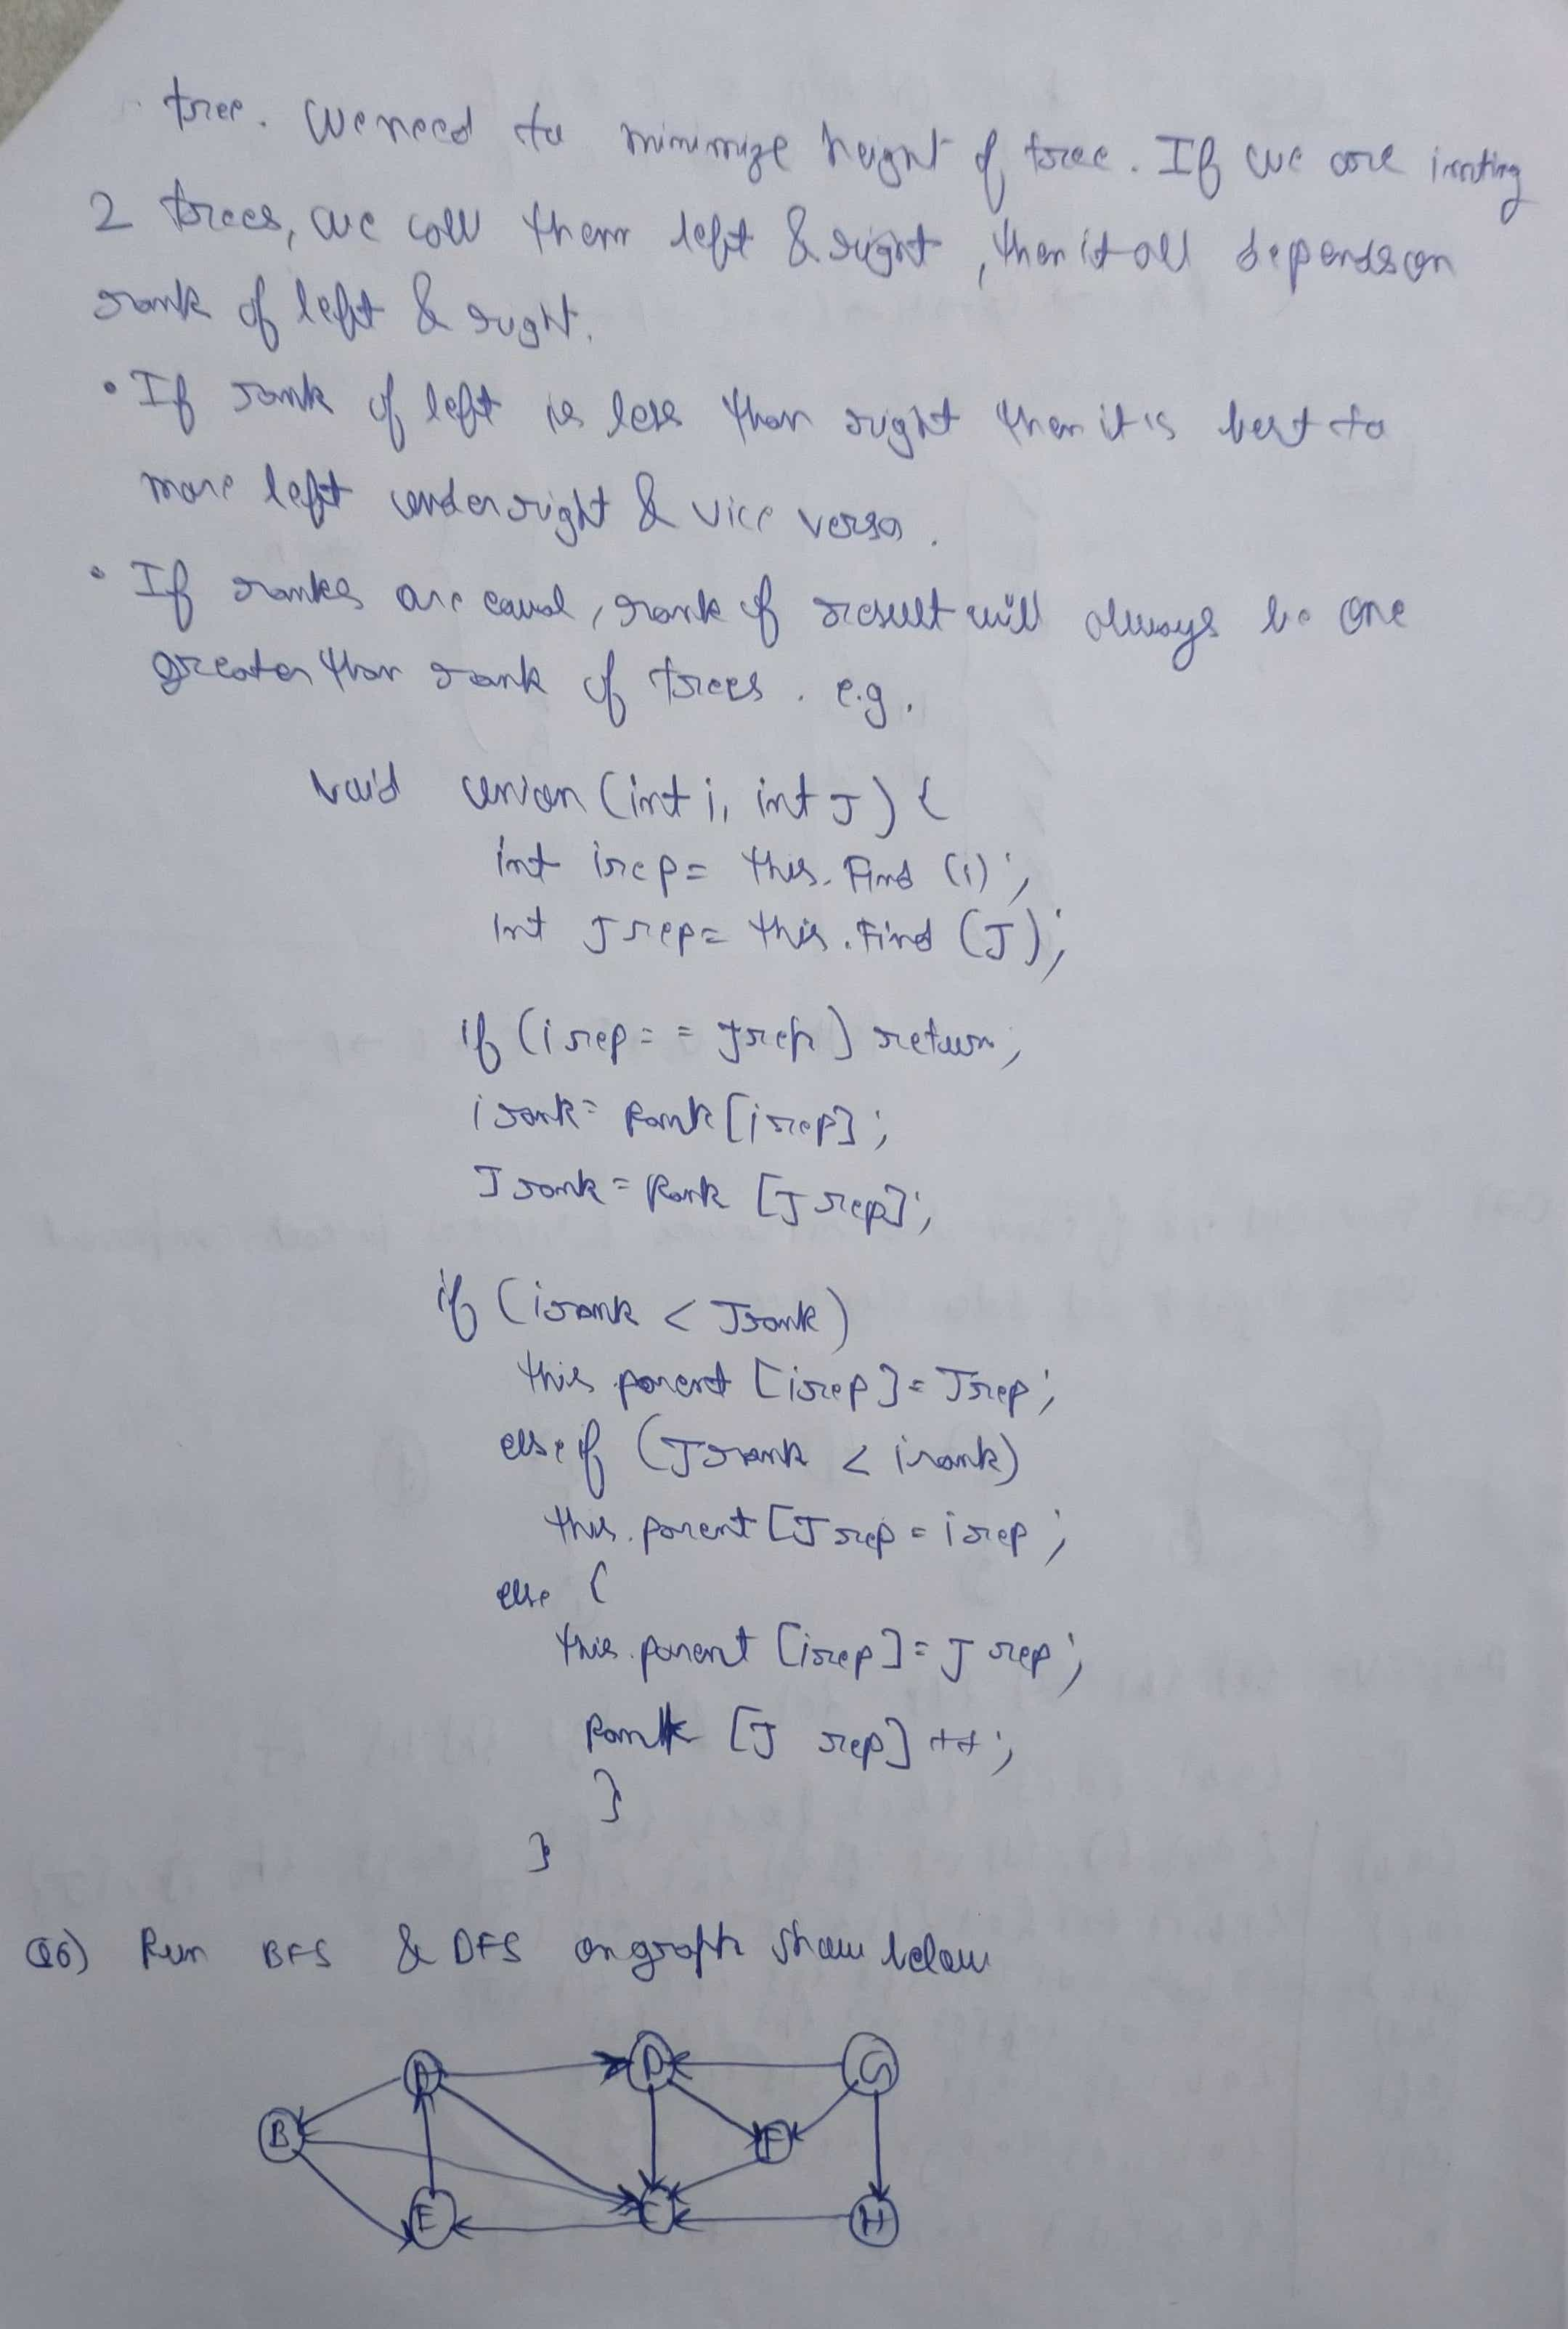 tree. We need to minimize height of tree. If we are
2 trees, we call them left & right, then it all depends on
rank of left & right.
• If rank of left is less than right then it is best to
move left under right & vice versa.
• If ranks are equal, rank of result will always be one
greater than rank of trees. e.g.
void union (int i, int J) {
int irep = this. Find (i);
int Jrep = this. Find (J);
if (irep == Jrep) return;
irank = Rank [irep];
Jrank = Rank [Jrep];
if (irank < Jrank)
this parent [irep] = Jrep;
else if (Jrank < irank)
this. parent [Jrep = irep;
else {
this. parent [irep] = Jrep;
Rank [J rep] ++;
}
}
Q6) Run BFS & DFS on graph show below
A D G
B F
E C H